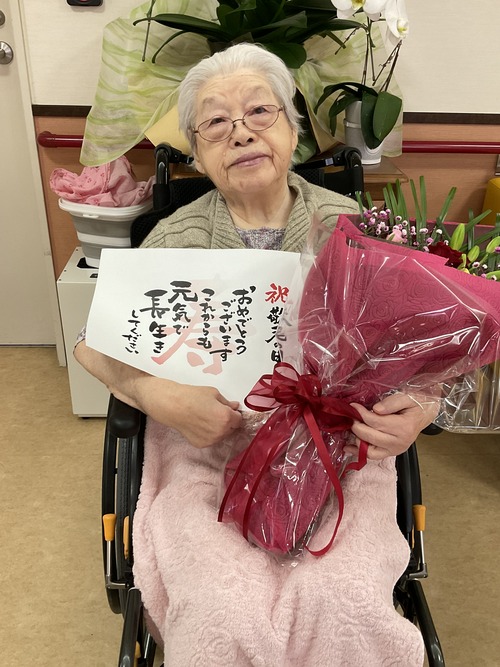 祝 敬老の日
おめでとう
ございます
これからも
元気で
長生き
してください。
寿